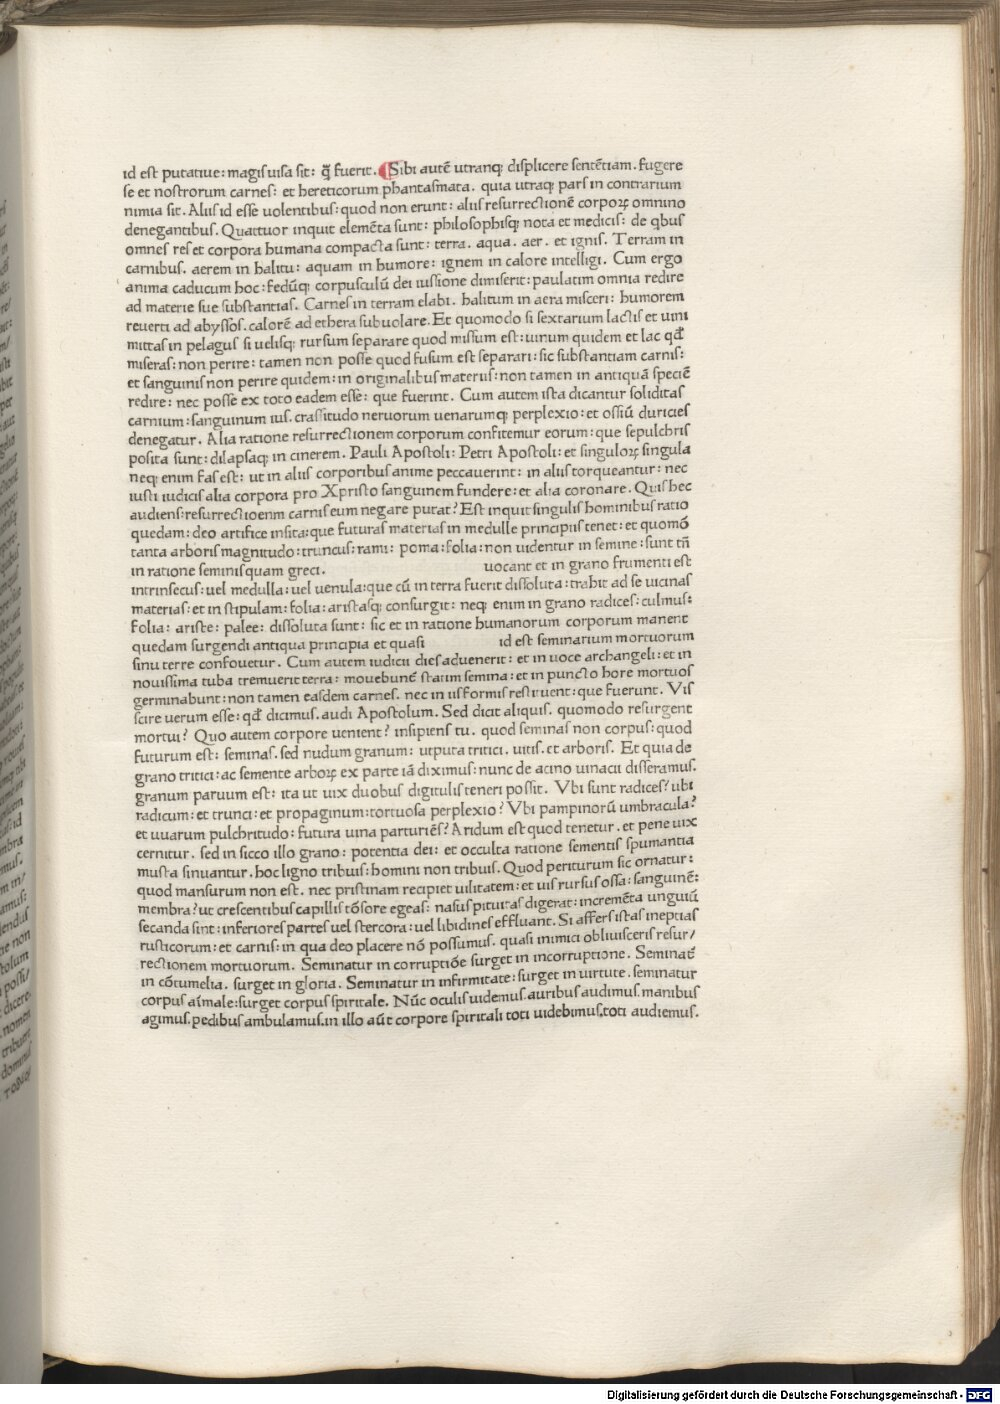 id est putatiue: magis uisa sit: q̃ fuerit. Sibi autẽ utranq; displicere sentẽtiam. fugere
se et nostrorum carnes: et hereticorum phantasmata. quia utraq; pars in contrarium
nimia sit. Aliis id esse uolentibus: quod non erunt: aliis resurrectionẽ corpoꝝ omnino
denegantibus. Quattuor inquit elemẽta sunt: philosophisq; nota et medicis: de qbus
omnes res et corpora humana compacta sunt: terra. aqua. aer. et ignis. Terram in
carnibus. aerem in halitu: aquam in humore: ignem in calore intelligi. Cum ergo
anima caducum hoc: fedũq; corpusculũ dei iussione dimiserit: paulatim omnia redire
ad materie sue substantias. Carnes in terram elabi. halitum in aera misceri: humorem
reuerti ad abyssos. calorẽ ad ethera subuolare. Et quomodo si sextarium lactis et uini
mittas in pelagus si uelisq; rursum separare quod missum est: uinum quidem et lac qď
miseras: non perire: tamen non posse quod fusum est separari: sic substantiam carnis:
et sanguinis non perire quidem: in originalibus materiis: non tamen in antiquã speciẽ
redire: nec posse ex toto eadem esse: que fuerint. Cum autem ista dicantur soliditas
carnium: sanguinum ius. crassitudo neruorum uenarumq; perplexio: et ossiũ duricies
denegatur. Alia ratione resurrectionem corporum confitemur eorum: que sepulchris
posita sunt: dilapsaq; in cinerem. Pauli Apostoli: Petri Apostoli: et singuloꝝ singula
neq; enim fas est: ut in aliis corporibus anime peccauerint: in aliis torqueantur: nec
iusti iudicis alia corpora pro Xpristo sanguinem fundere: et alia coronare. Quis hec
audiens: resurrectioenm carnis eum negare putat? Est inquit singulis hominibus ratio
quedam: deo artifice insita: que futuras materias in medulle principiis tenet: et quomõ
tanta arboris magnitudo: truncus: rami: poma: folia: non uidentur in semine: sunt tñ
in ratione seminis quam greci. uocant et in grano frumenti est
intrinsecus: uel medulla: uel uenula: que cũ in terra fuerit dissoluta: trahit ad se uicinas
materias: et in stipulam: folia: aristasq; consurgit: neq; enim in grano radices: culmus:
folia: ariste: palee: dissoluta sunt: sic et in ratione humanorum corporum manent
quedam surgendi antiqua principia et quasi id est seminarium mortuorum
sinu terre confouetur. Cum autem iudicii dies aduenerit: et in uoce archangeli: et in
nouissima tuba tremuerit terra: mouebunť statim semina: et in puncto hore mortuos
germinabunt: non tamen easdem carnes. nec in iis formis restituent: que fuerunt. Vis
scire uerum esse: qď dicimus. audi Apostolum. Sed dicit aliquis. quomodo resurgent
mortui? Quo autem corpore uenient? insipiens tu. quod seminas non corpus: quod
futurum est: seminas. sed nudum granum: utputa tritici. uitis. et arboris. Et quia de
grano tritici: ac semente arboꝝ ex parte iã diximus: nunc de acino uinacii disseramus.
granum paruum est: ita ut uix duobus digitulis teneri possit. Vbi sunt radices? ubi
radicum: et trunci: et propaginum: tortuosa perplexio? Vbi pampinorũ umbracula?
et uuarum pulchritudo: futura uina parturiẽs? Aridum est quod tenetur. et pene uix
cernitur. sed in sicco illo grano: potentia dei: et occulta ratione sementis spumantia
musta sinuantur. hoc ligno tribuis: homini non tribuis. Quod periturum sic ornatur:
quod mansurum non est. nec pristinam recipiet uilitatem: et uis rursus ossa: sanguinẽ:
membra? ut crescentibus capillis tõsore egeas: nasus pituitas digerat: incremẽta unguiũ
secanda sint: inferiores partes uel stercora: uel libidines effluant. Si affers istas ineptias
rusticorum: et carnis: in qua deo placere nõ possumus. quasi inimici obliuisceris resur/
rectionem mortuorum. Seminatur in corruptiõe surget in incorruptione. Seminať
in cõtumelia. surget in gloria. Seminatur in infirmitate: surget in uirtute. seminatur
corpus aĩmale: surget corpus spiritale. Nũc oculis uidemus. auribus audimus. manibus
agimus. pedibus ambulamus. in illo aũt corpore spiritali toti uidebimus. toti audiemus.
Digitalisierung gefördert durch die Deutsche Forschungsgemeinschaft - DFG